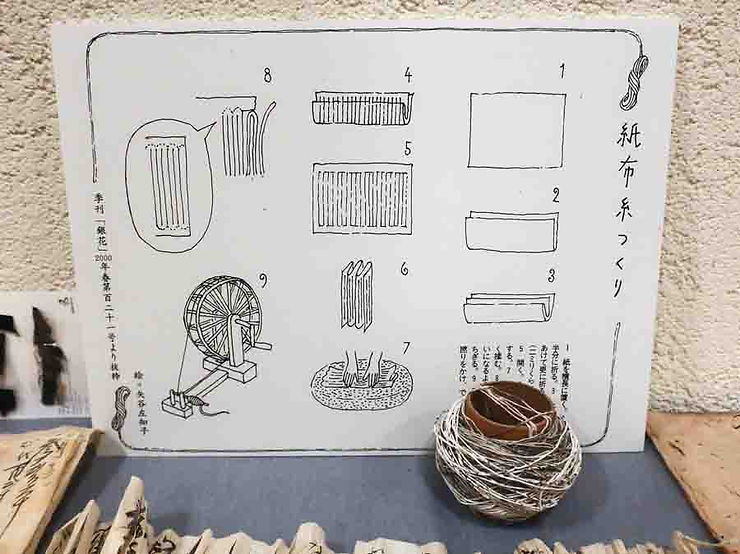 紙布糸つくり
1
2
3
4
5
6
7
8
9
1 紙を横長に置く。
半分に折る。3
あけて更に折
(二ミリくら
する。5 開く。
する。7
く揉む。8
いになるよ
ちぎる。9
撚りをかけ、
季刊「銀花」2000年春第百二十一号より抜粋
絵・矢谷左知子